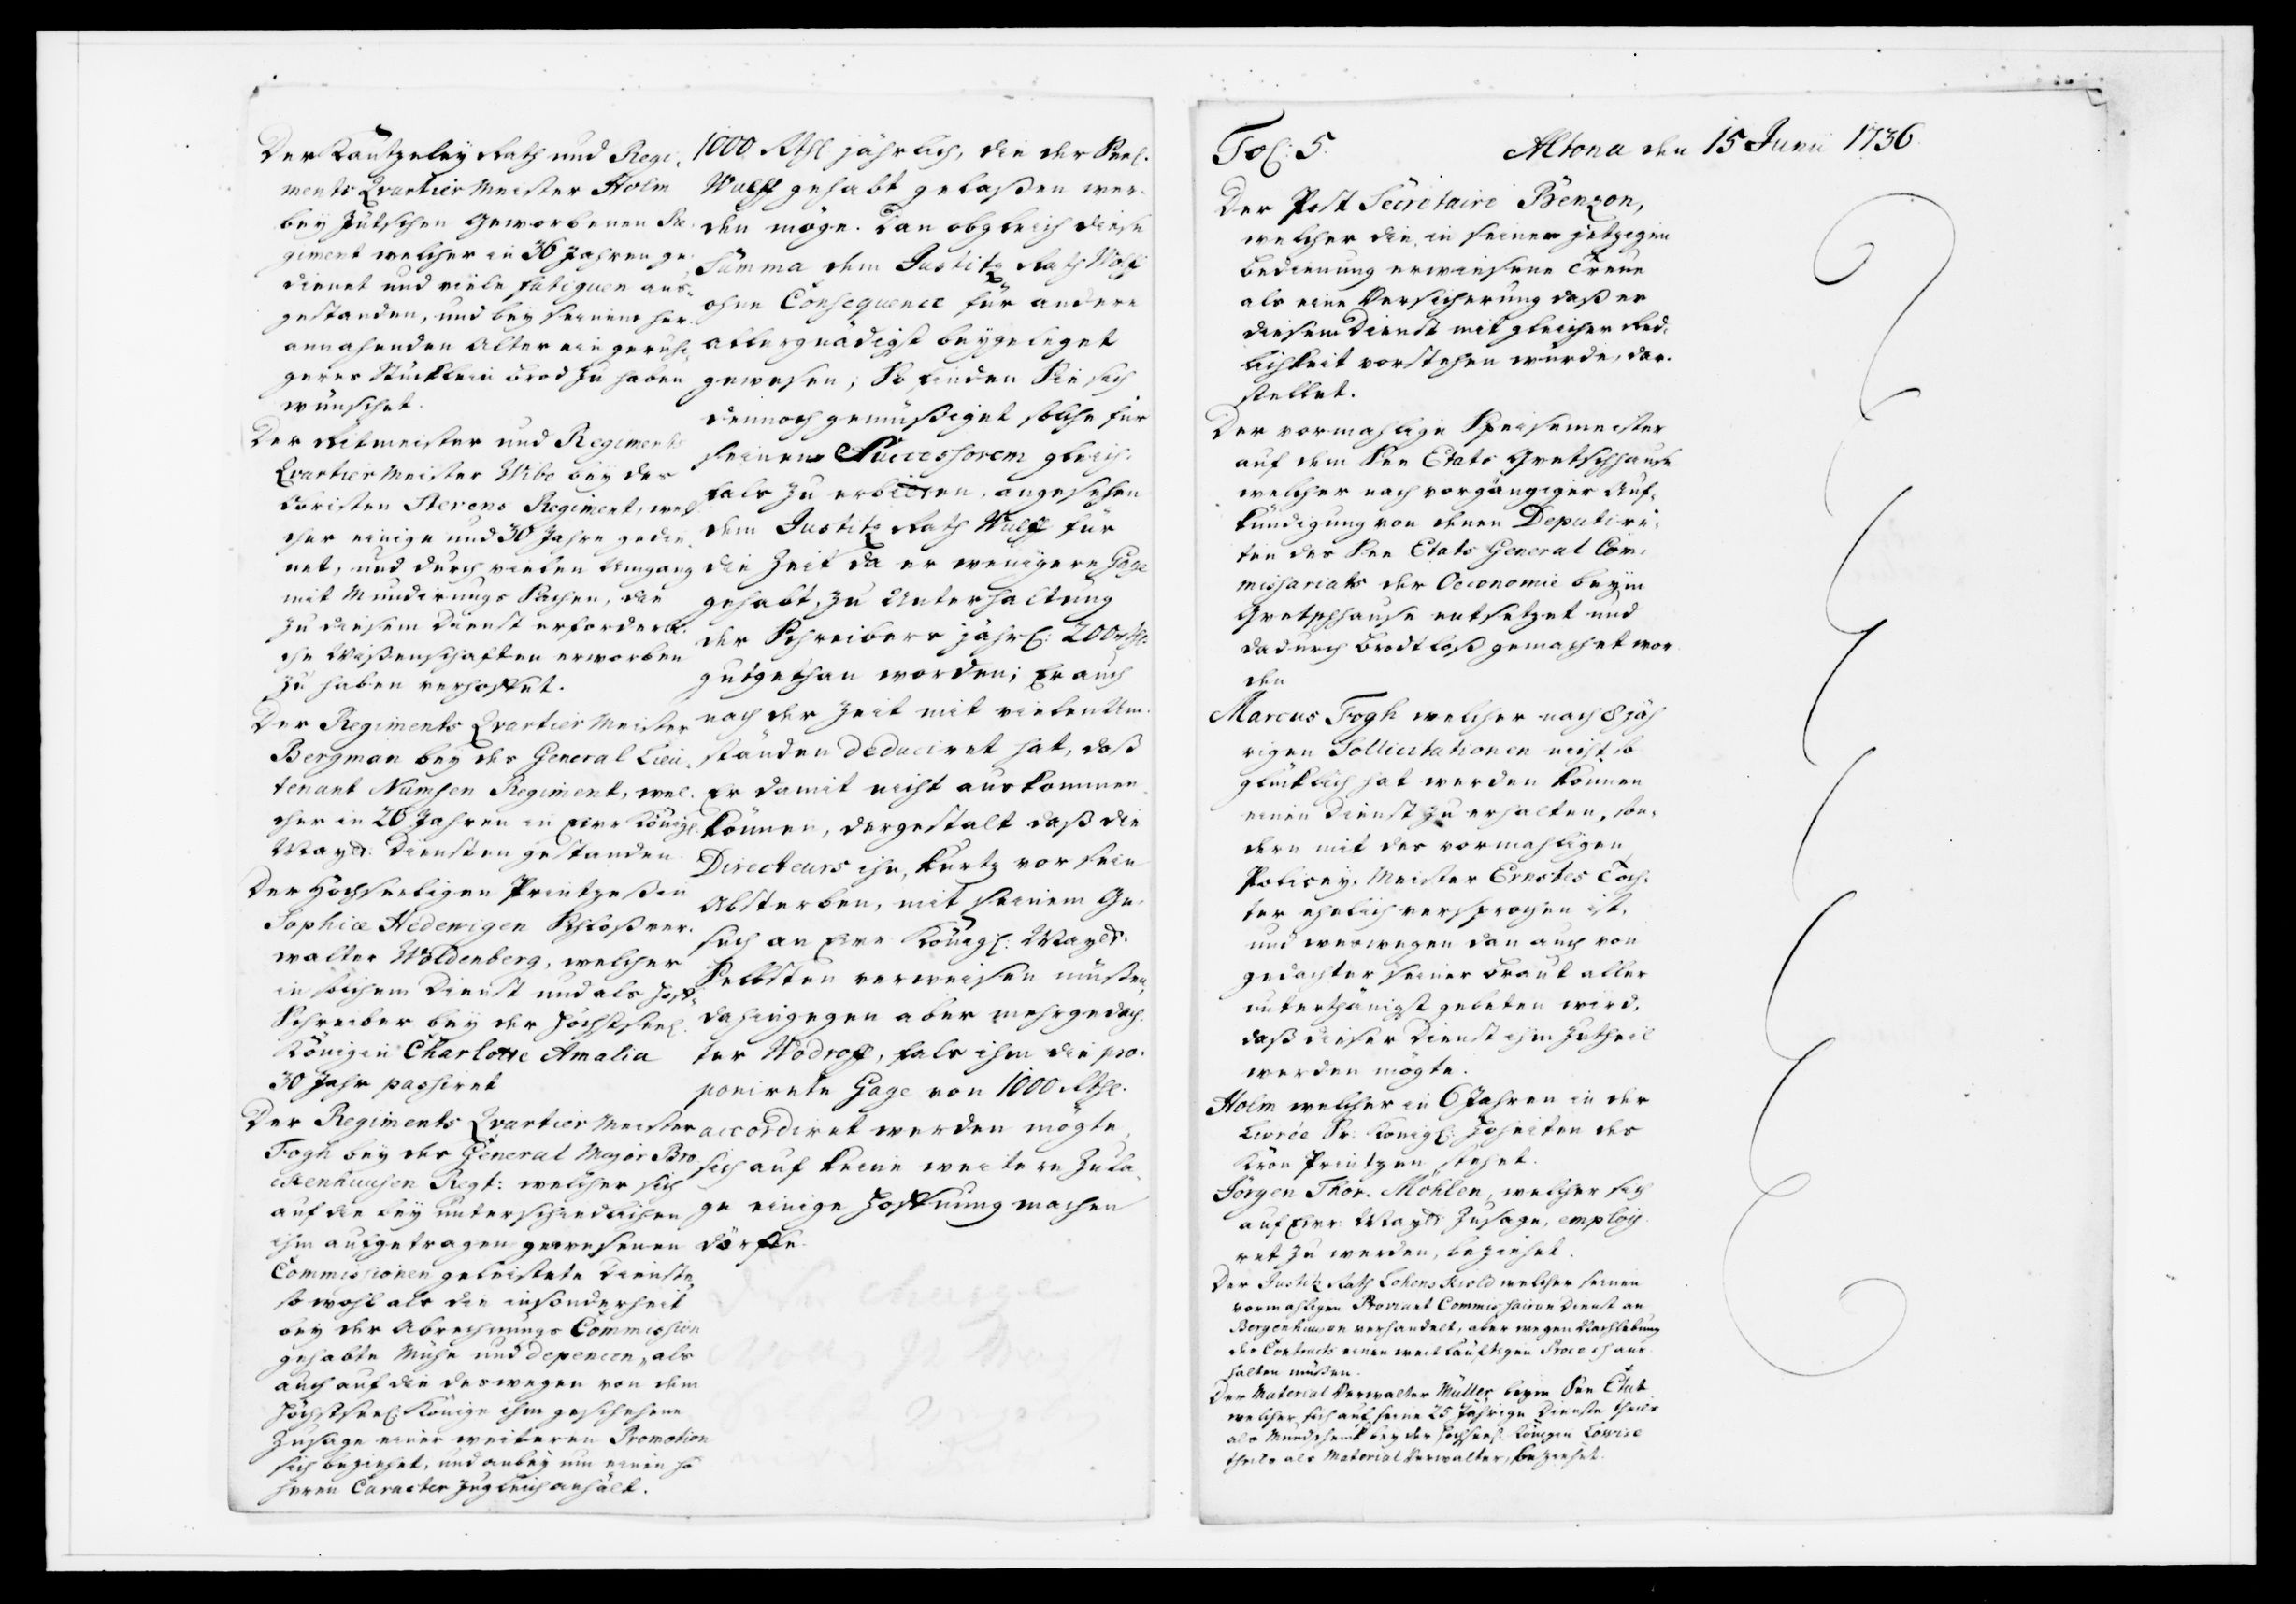 Der Cantzeley Rath und Regi-
ments Quartier Meister Holm
bey Jütschen Geworbenen Re-
giment welcher in 36 Jahren ge-
dienet und viele fatiguen aus-
gestanden, und bey seinem her-
annahenden Alter ein geruhi-
geres Stücklein Brod zu haben
wünschet.
Der Ritmeister und Regiments
Quartier Meister Wibe bey des
Obristen Sterens Regiment, wel-
cher einige und 30 Jahre gedie-
net, und durch vielen Umgang
mit Mundirungs Sachen, die
zu diesem Dienst erforderli-
che Wißenschafften erworben
zu haben verhoffet.
Der Regiments Quartier Meister
Bergman bey des General Lieu-
tenant Numsen Regiment, wel-
cher in 26 Jahren in Ewr Königl.
Mayt. Diensten gestanden
Der Höchseeligen Printzeßin
Sophice Hedewigen Schloßver-
walter Woldenberg, welcher
in solchem Dienst und als Hoff-
Schreiber bey der Höchstseel.
Königin Charlotte Amalia
30 Jahr passiret
Der Regiments Quartier Meister
Fogh bey des General Major Bro
ckenhuusen Regt: welcher sich
auf die bey unterschiedlichen
ihm aufgetragen gewesenen
Commissionen geleistete Dienste,
so wohl als die insonderheit
bey der Abrechnungs Commission
gehabte Mühe und depencen, als
auch auf die deswegen von dem
Höchstseel: Könige ihm geschehene
Zusage einer weiteren Promotion
sich beziehet, und anbey um einen hö
heren Caracter zugleich anhält.
1000 Rthl jährlich, die der Seel.
Wulff gehabt gelaßen wer-
den möge. Dan obgleich diese
Summa dem Justitz Rath Wolff
ohne Consequence für andere
allergnädigst beygeleget
gewesen; So finden Sie sich
dennoch gemüßiget solche für
seinen Successorem gleich-
fals zu erbitten, angesehen
dem Justitz Rath Wulff für
die Zeit da er wenigere Gage
gehabt, zu Unterhaltung
der Schreibers jährl: 200 rthl.
gutgethan worden; Er auch
nach der Zeit mit vielen Um-
ständen deduciret hat, daß
Er damit nicht auskommen
können, dergestalt daß die
Directeurs ihn, kurtz vor sein
Absterben, mit seinem Ge-
such an Ewr Königl: Mayt.
Selbsten verweisen müßen,
dahingegen aber mehrgedach-
ter Wodroff, fals ihm die pro-
ponirete Gage von 1000 Rthl.
accordiret werden mögte,
sich auf keine weitere Zula-
ge einige Hoffnung machen
dörffe.
Fol: 5. Altona den 15 Junii 1736.
Der Post Secretaire Benzon,
welcher die in seiner jetzigen
Bedienung erwiesene Treue
als eine Versicherung daß er
diesem Dienst mit gleicher Red-
lichkeit vorstehen würde, dar-
stellet.
Der vormahlige Speisemeister
auf dem See Etats Gretschhause
welcher nach vorgängiger Auf-
kündigung von denen Deputire-
ten des See Etats General Com-
missariats der Oeconomie beym
Gretschhause entsetzet und
dadurch Brodtloß gemachet wor
den
Marcus Fogh welcher nach 8 jäh
rigen Sollicitationen nicht so
glücklich hat werden können
einen Dienst zu erhalten, son-
dern mit des vormahligen
Policey-Meister Ernstes Toch-
ter ehelich versprochen ist,
und weswegen dan auch von
gedachter seiner Braut aller
unterthänigst gebeten wird,
daß dieser Dienst ihm zutheil
werden mögte.
Holm welcher in 6 Jahren in der
Livrée Sr. Königl: Hoheiten des
Kron Printzen stehet.
Jörgen Thor. Mohlen, welcher sich
auf Ewr Mayt Zusage, employ
ret zu werden, beziehet.
Der Justitz Rath Lohenskiold welcher seinen
vormahligen Proviant Commissairen Dienst an
Bergenhuusen verhandelt, aber wegen Nachlebung
des Contracts einen weitläuftigen Process aus
halten müßen.
Der Material Verwalter Müller beym See Etat
welcher sich auf seine 25 Jährige Dienste theils
als Mundschenk bey der Hochseel. Königin Lovise
theils als Material Verwalter, beziehet.